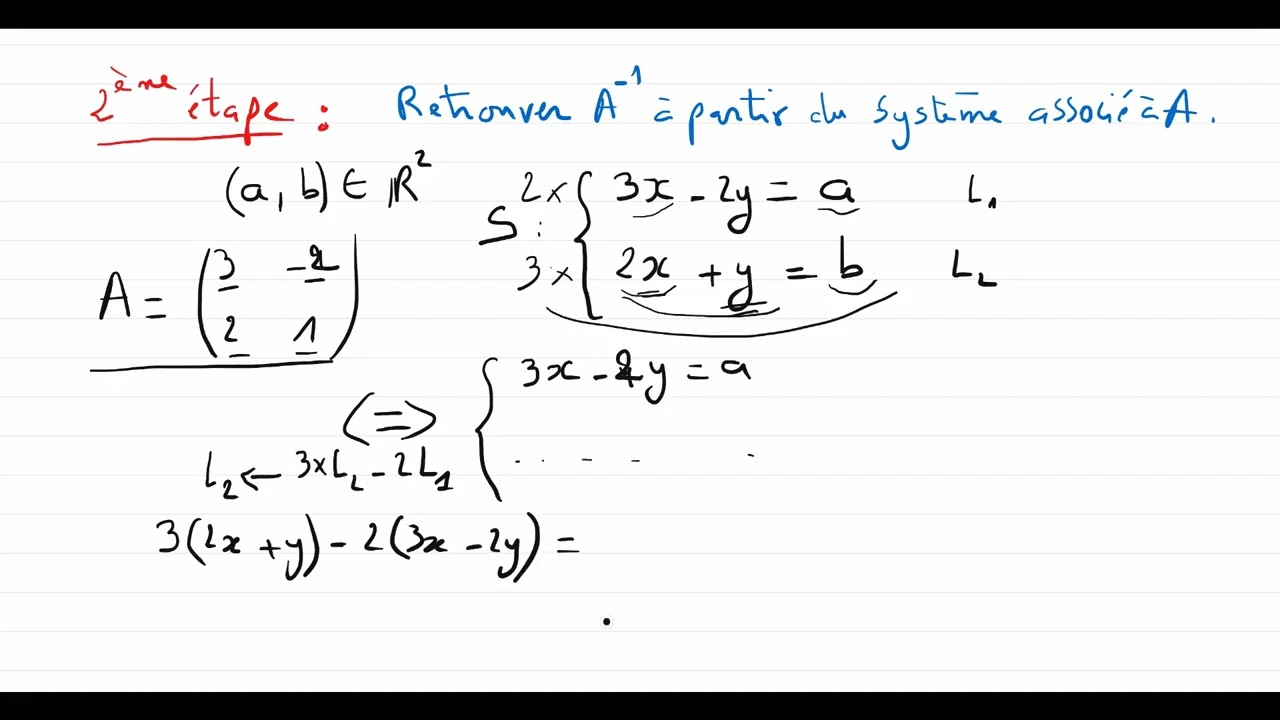 2ème étape : Retrouver A⁻¹ à partir du système associé à A.
(a, b) ∈ ℝ²
2× 3x - 2y = a L₁
S :
3× 2x + y = b L₂
A = (3 -2
2 1)
3x - 2y = a
<=>
L₂ ← 3×L₂ - 2L₁ . . - - .
3(2x + y) - 2(3x - 2y) =